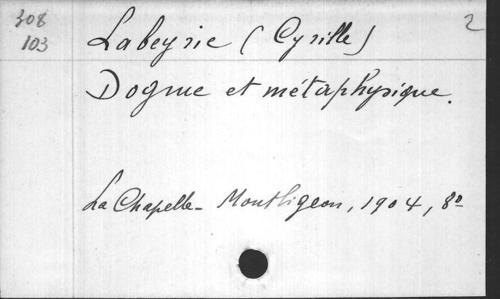 308
103
Labeyrie (Cyrille)
2
Dogme et métaphysique.
La Chapelle-Montligeon, 1904, 8º